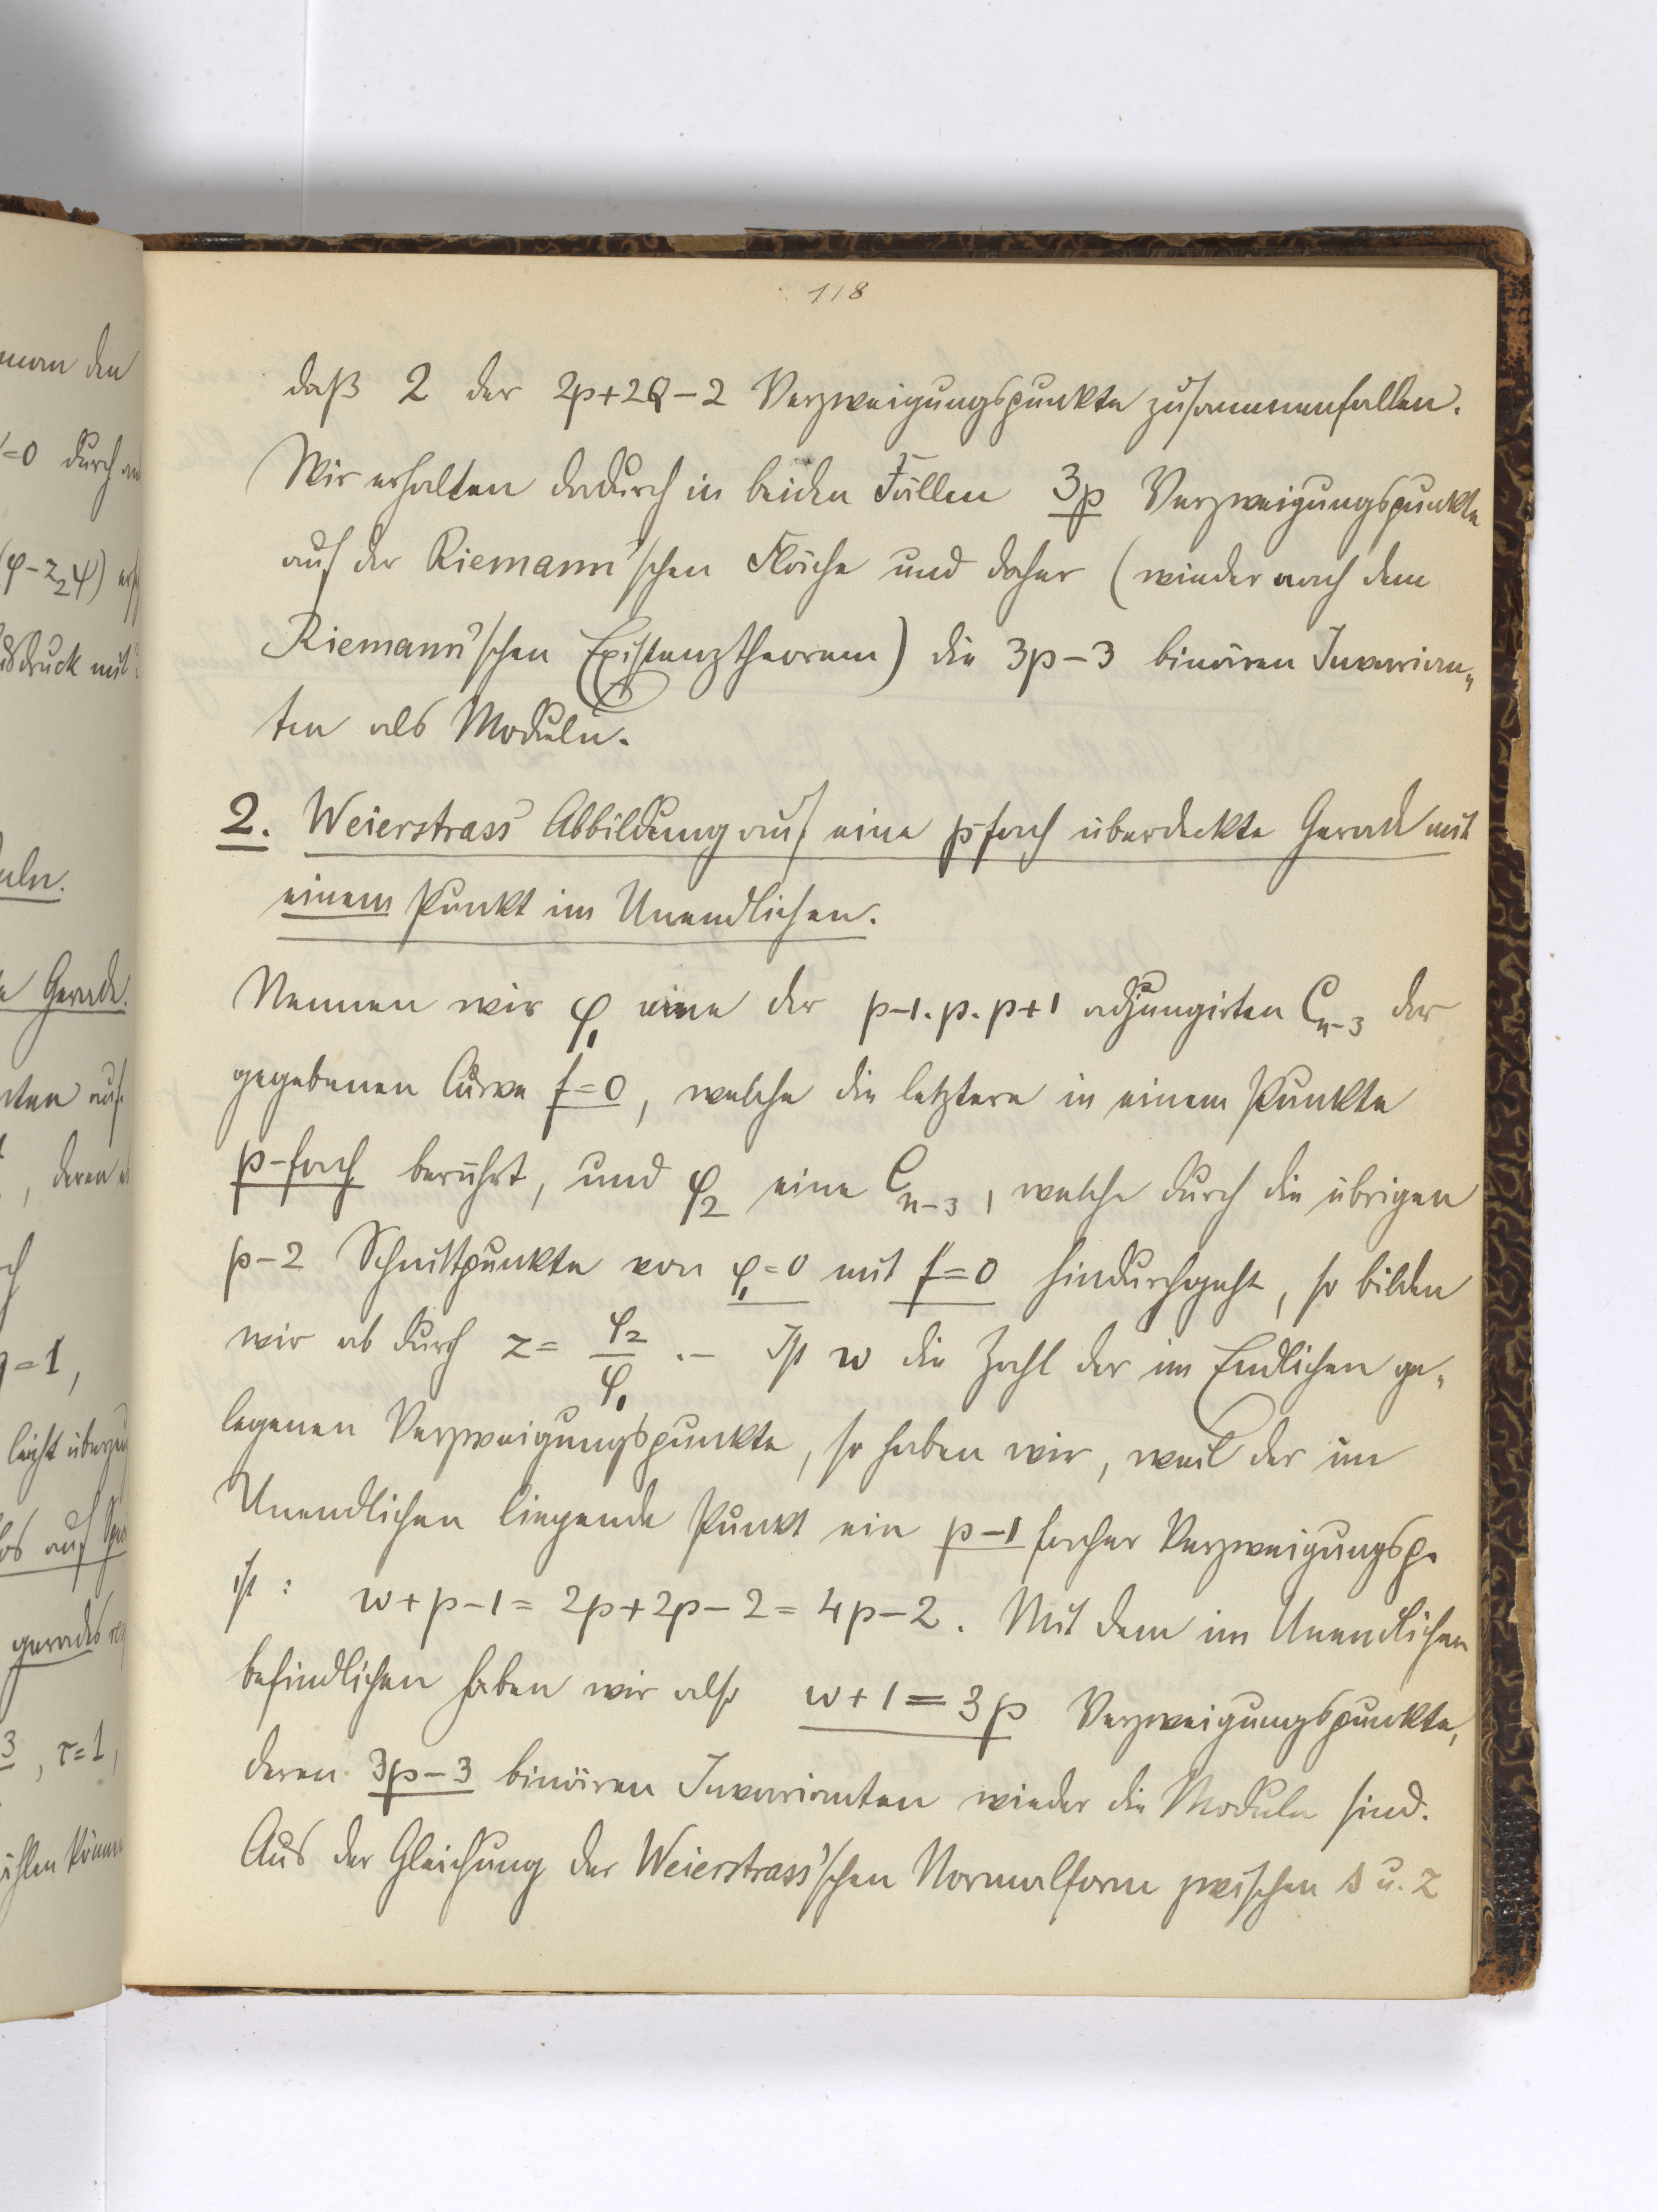 118
daß 2 der 2p+2Q-2 Verzweigungspunkte zusammenfallen.
Wir erhalten dadurch in beiden Fällen 3p Verzweigungspunkte
auf der Riemann'schen Fläche und daher (wieder nach dem
Riemann'schen Existenztheorem) die 3p-3 binären Invarian„
ten als Moduln.
2. Weierstrass' Abbildung auf eine p-fach überdeckte Gerade mit
einem Punkt im Unendlichen.
Nennen wir φ₁ eine der p-1.p.p+1 adjungirten Cₙ₋₃ der
gegebenen Curve f=0, welche die letztere in einem Punkte
p-fach berührt, und φ₂ eine Cₙ₋₃, welche durch die übrigen
p-2 Schnittpunkte von φ₁=0 mit f=0 hindurchgeht, so bilden
wir ab durch z= φ₂/φ₁ .– Ist w die Zahl der im Endlichen ge„
legenen Verzweigungspunkte, so haben wir, weil der im
Unendlichen liegende Punkt ein p-1 facher Verzweigungsp.
ist: w+p-1=2p+2p-2=4p-2. Mit dem im Unendlichen
befindlichen haben wir also w+1=3p Verzweigungspunkte,
deren 3p-3 binären Invarianten wieder die Moduln sind.
Aus der Gleichung der Weierstrass'schen Normalform zwischen s u. z
man den
=0 durch
(φ-z₂ψ)
druck mit
uln.
Gerade.
auf
, deren
=1,
leicht
auf
gerades
3, τ=1,